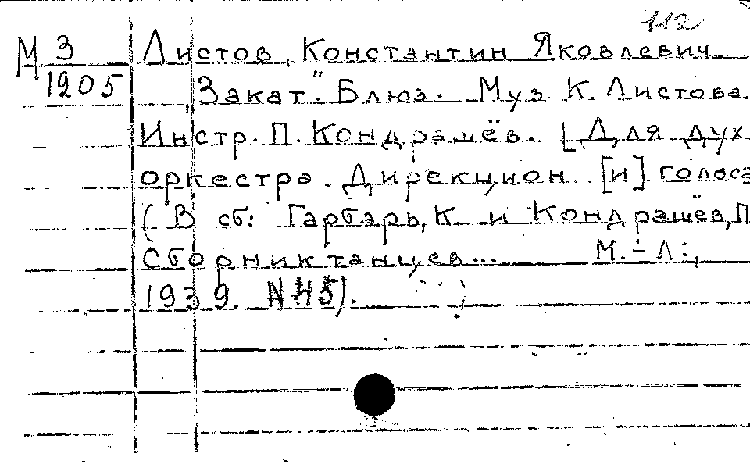 112
М 3 Листов, Константин Яковлевич.
1205 "Закат". Блюз. Муз К. Листова.
Инстр. П. Кондрашёв. [Для дух
оркестра. Дирекцион [и] голоса
(В сб: Гарбарь, К и Кондрашёв, П
Сборник танцев... М.-Л:,
1939. N45).